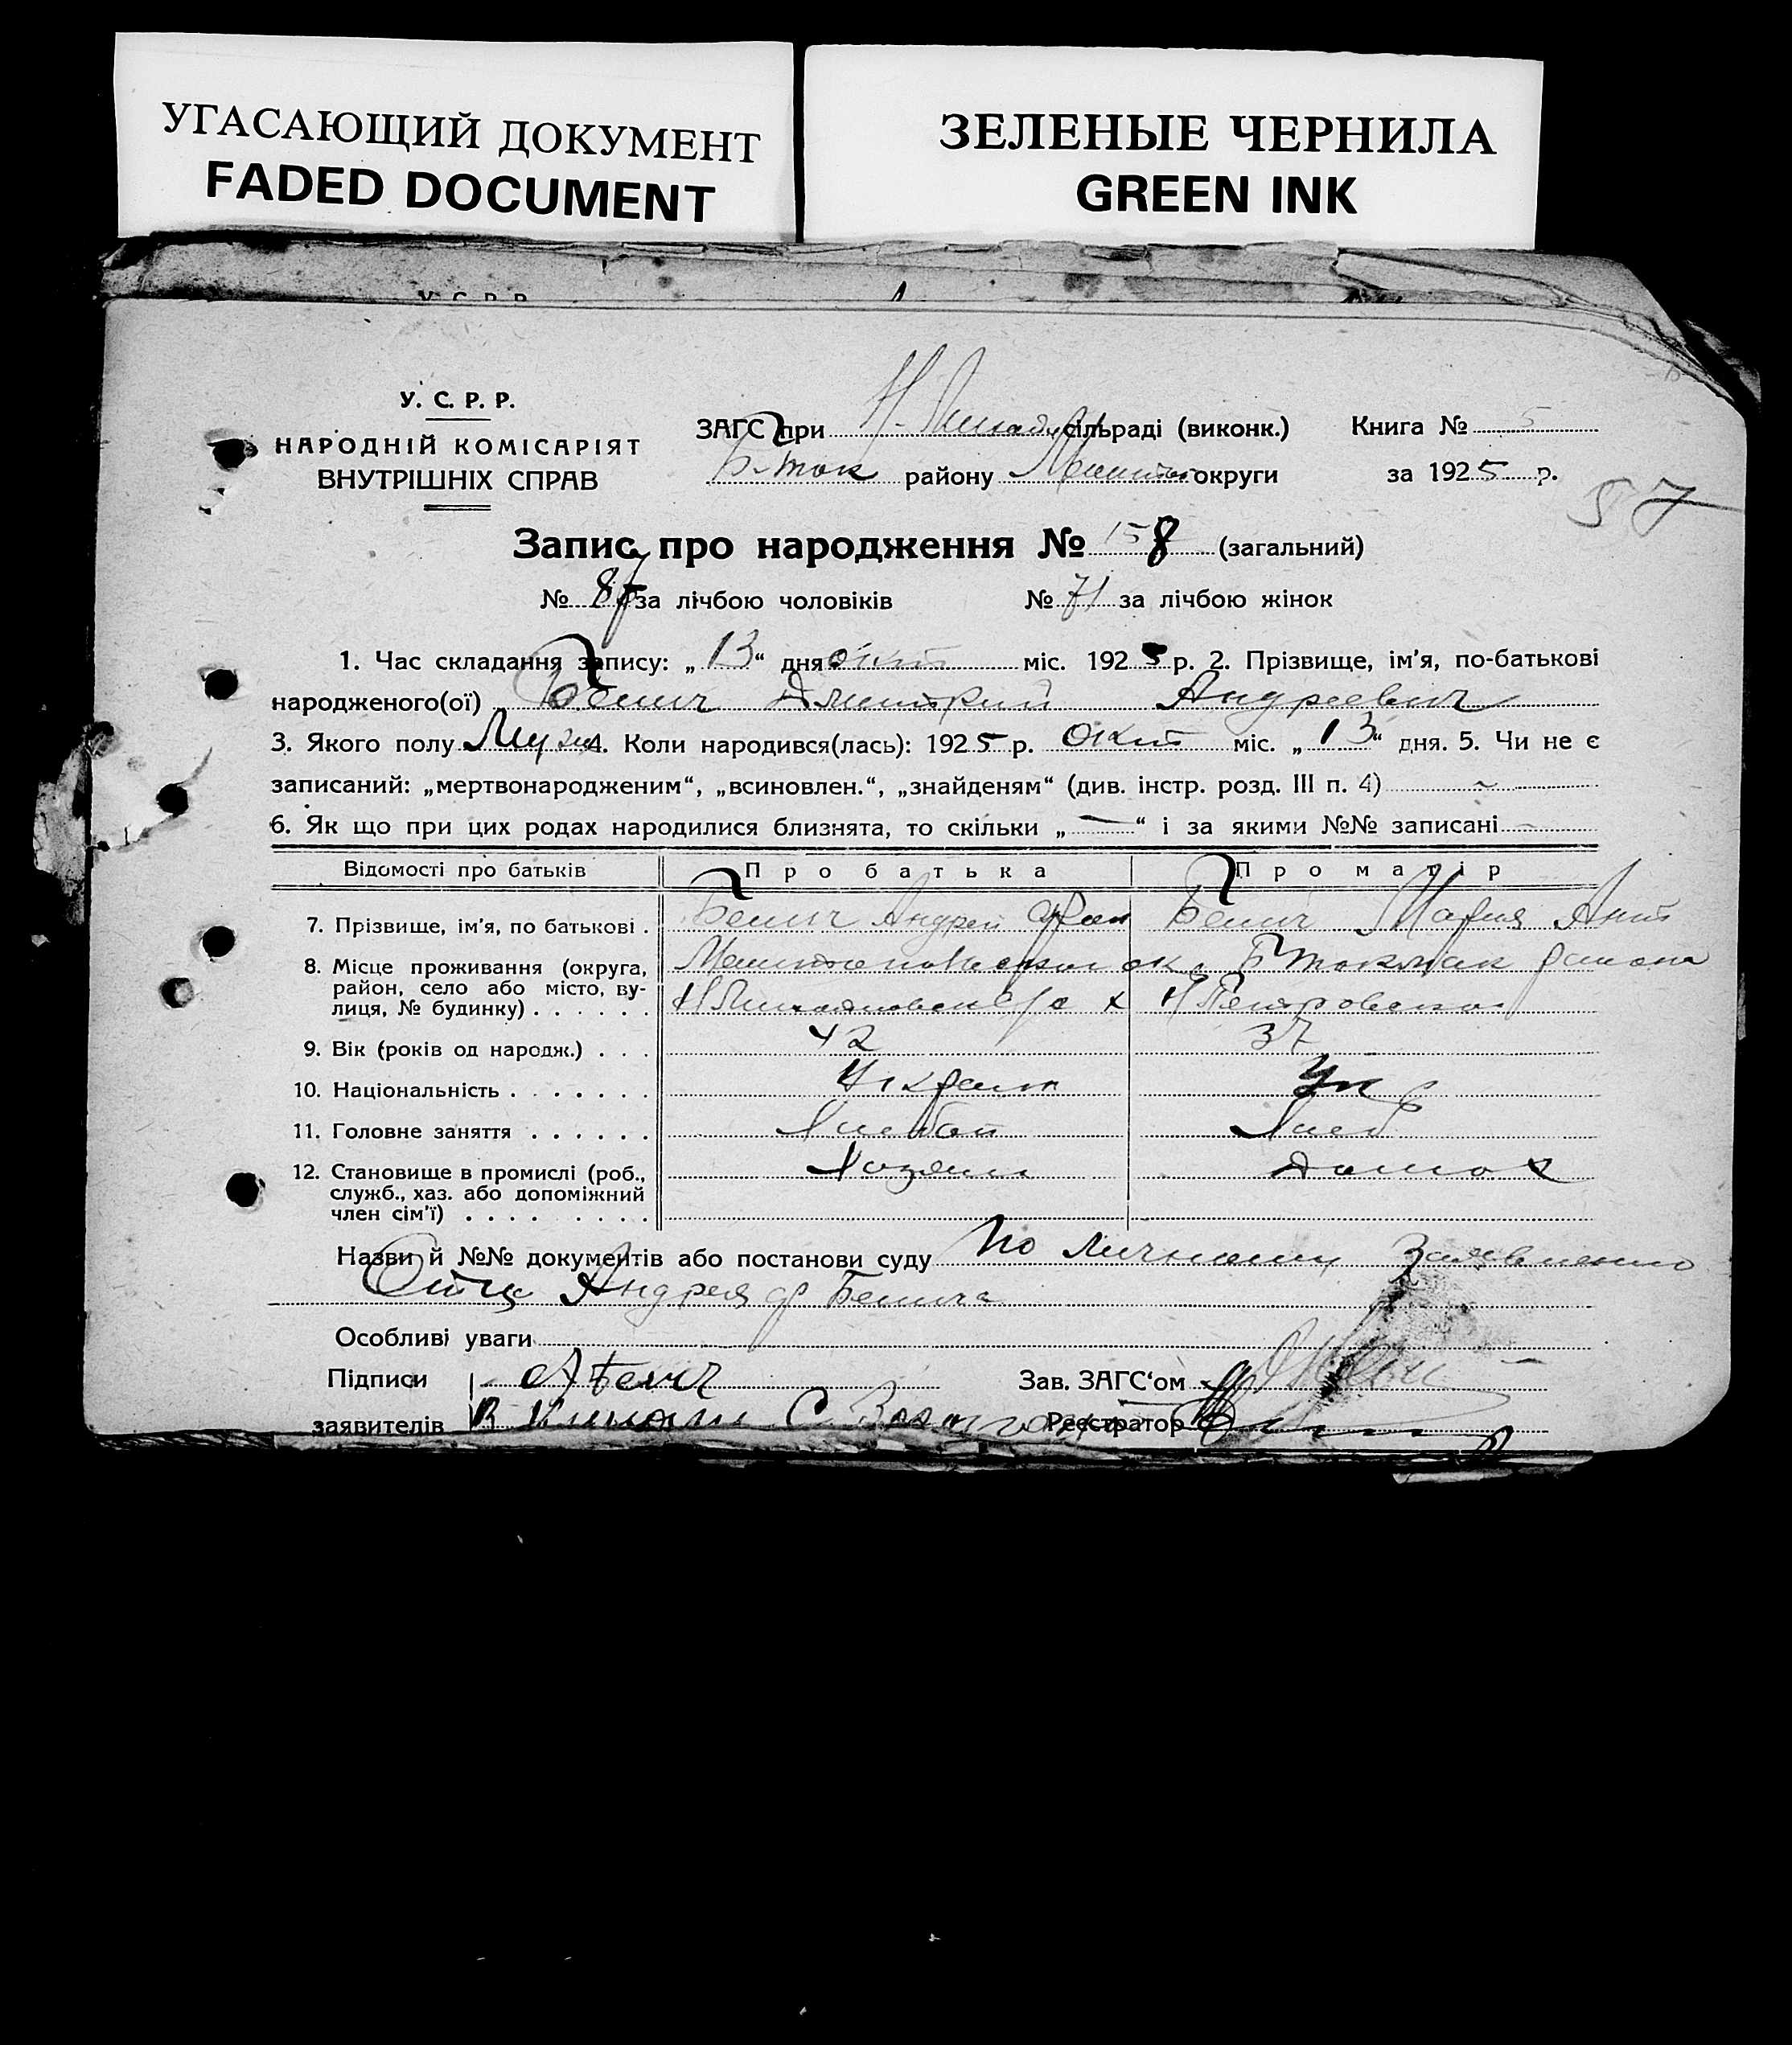 УГАСАЮЩИЙ ДОКУМЕНТ
FADED DOCUMENT
ЗЕЛЕНЫЕ ЧЕРНИЛА
GREEN INK
У. С. Р. Р.
У. С. Р. Р.
НАРОДНІЙ КОМІСАРІЯТ
ВНУТРІШНІХ СПРАВ
ЗАГС при сільраді (виконк.)
Б-Ток району округи
Книга № 5
за 1925 р.
57
Запис про народження № 158 (загальний)
№ 87 за лічбою чоловіків № 71 за лічбою жінок
1. Час складання запису: „13“ дня окт міс. 1925 р. 2. Прізвище, ім'я, по-батькові
народженого(ої) Белич Дмитрий Андреевич
3. Якого полу Муж 4. Коли народився(лась): 1925 р. Окт міс. „13“ дня. 5. Чи не є
записаний: „мертвонародженим“, „всиновлен.“, „знайденям“ (див. інстр. розд. III п. 4) ~
6. Як що при цих родах народилися близнята, то скільки „—“ і за якими №№ записані —
Відомості про батьків Про батька Про матір
7. Прізвище, ім'я, по батькові . Белич Андрей Белич Мария Ант
8. Місце проживання (округа, ок. Б Токмак района
район, село або місто, ву-
лиця, № будинку) . . . . . . Н Петровском
9. Вік (років од народж.) . . . 42 37
10. Національність . . . . . . . Украин Укр
11. Головне заняття . . . . . . Хлебоп Хлеб
12. Становище в промислі (роб., Хозяин Домох
служб., хаз. або допоміжний
член сім'ї) . . . . . . . .
Назви й №№ документів або постанови суду По личному Заявлению
Отца Андрея Ф Белича
Особливі уваги
Підписи А Белич Зав. ЗАГС'ом
заявителів Реєстратор